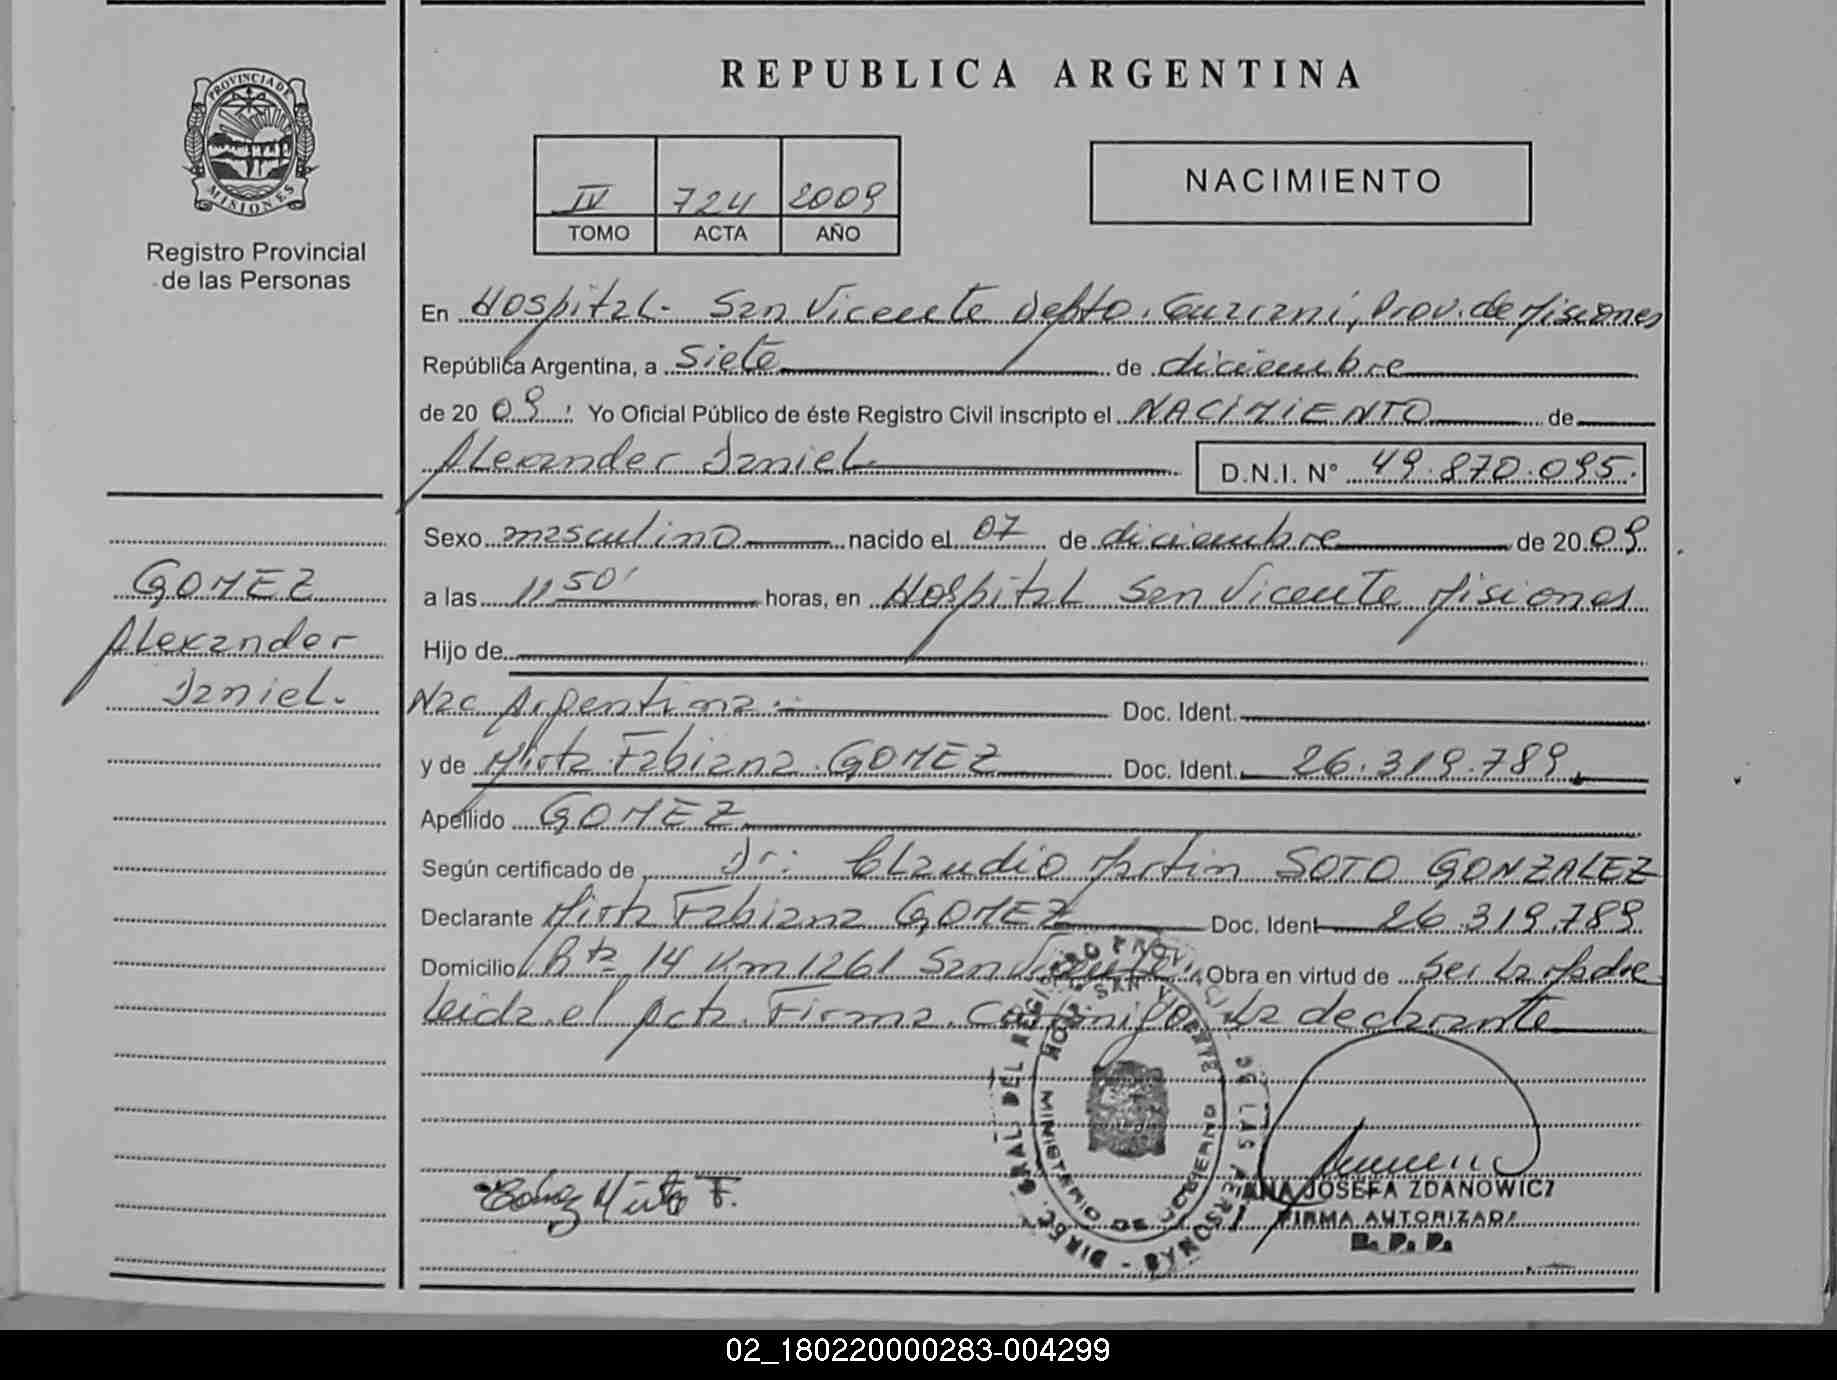 REPUBLICA ARGENTINA
PROVINCIA DE MISIONES
Registro Provincial
de las Personas
IV 724 2009
TOMO ACTA AÑO
NACIMIENTO
En Hospital. San Vicente Depto. Guaraní, Prov. de Misiones
República Argentina, a Siete de diciembre
de 20 09. Yo Oficial Público de éste Registro Civil inscripto el NACIMIENTO de
Alexander Daniel D.N.I. N° 49.870.095.
Sexo masculino nacido el 07 de diciembre de 20 09
a las 11 50' horas, en Hospital San Vicente Misiones
Hijo de
Nac Argentina.- Doc. Ident.
y de Mirta Fabiana GOMEZ Doc. Ident. 26.319.789.
Apellido GOMEZ
Según certificado de Dr: Claudio Martin SOTO GONZALEZ
Declarante Mirta Fabiana GOMEZ Doc. Ident 26.319.789
Domicilio Rta 14 Km 1261 San Vicente. Obra en virtud de Ser La Madre
Leida el Acta. Firma Conmigo La declarante
GOMEZ
Alexander
Daniel.
DIREC. GRAL. DEL REGISTRO PROVINCIAL DE LAS PERSONAS
HOSP. SAN VICENTE
MINISTERIO DE GOBIERNO
Gómez Mirta F.
ANA JOSEFA ZDANOWICZ
FIRMA AUTORIZADA
R. P. P.
02_180220000283-004299